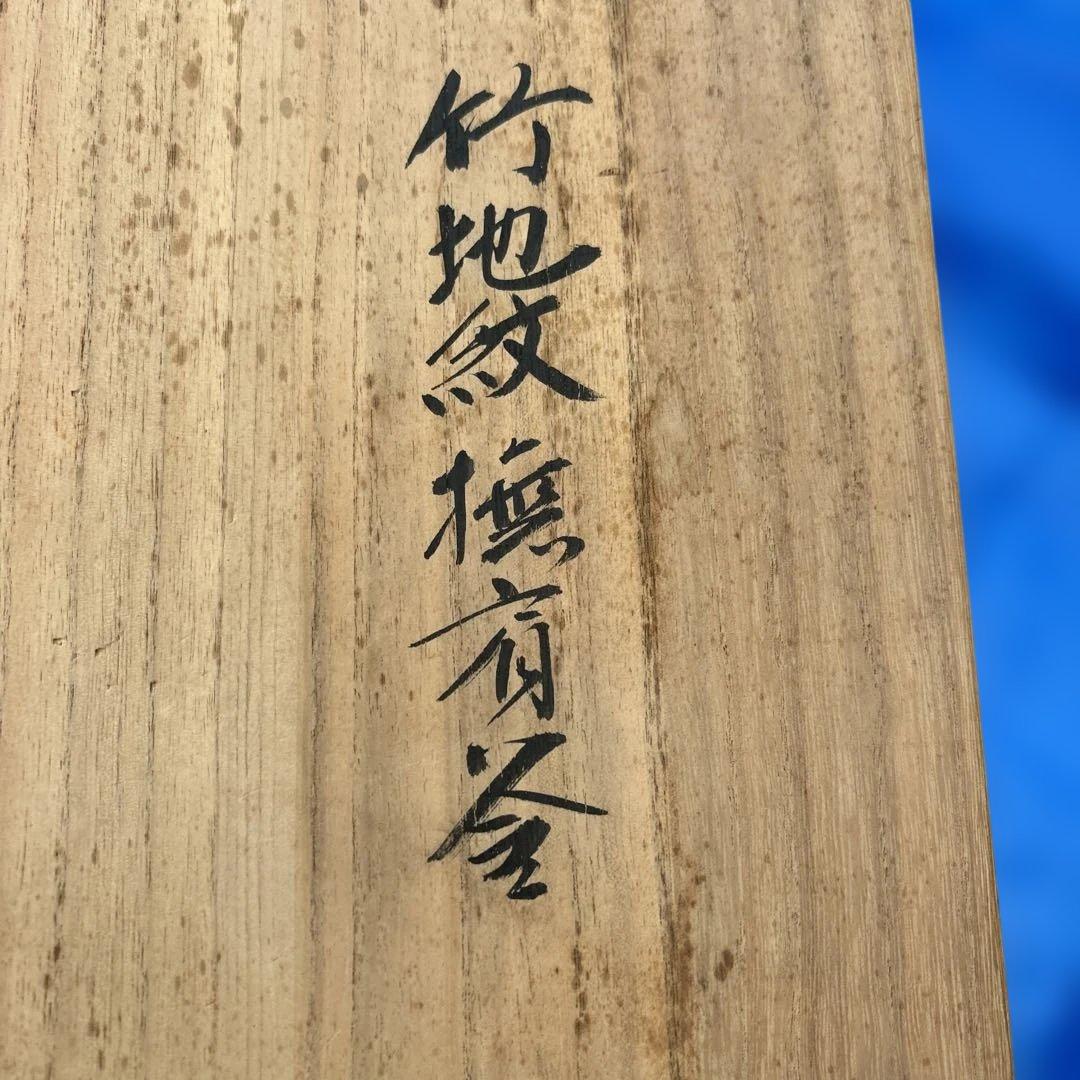 竹地紋撫肩釜